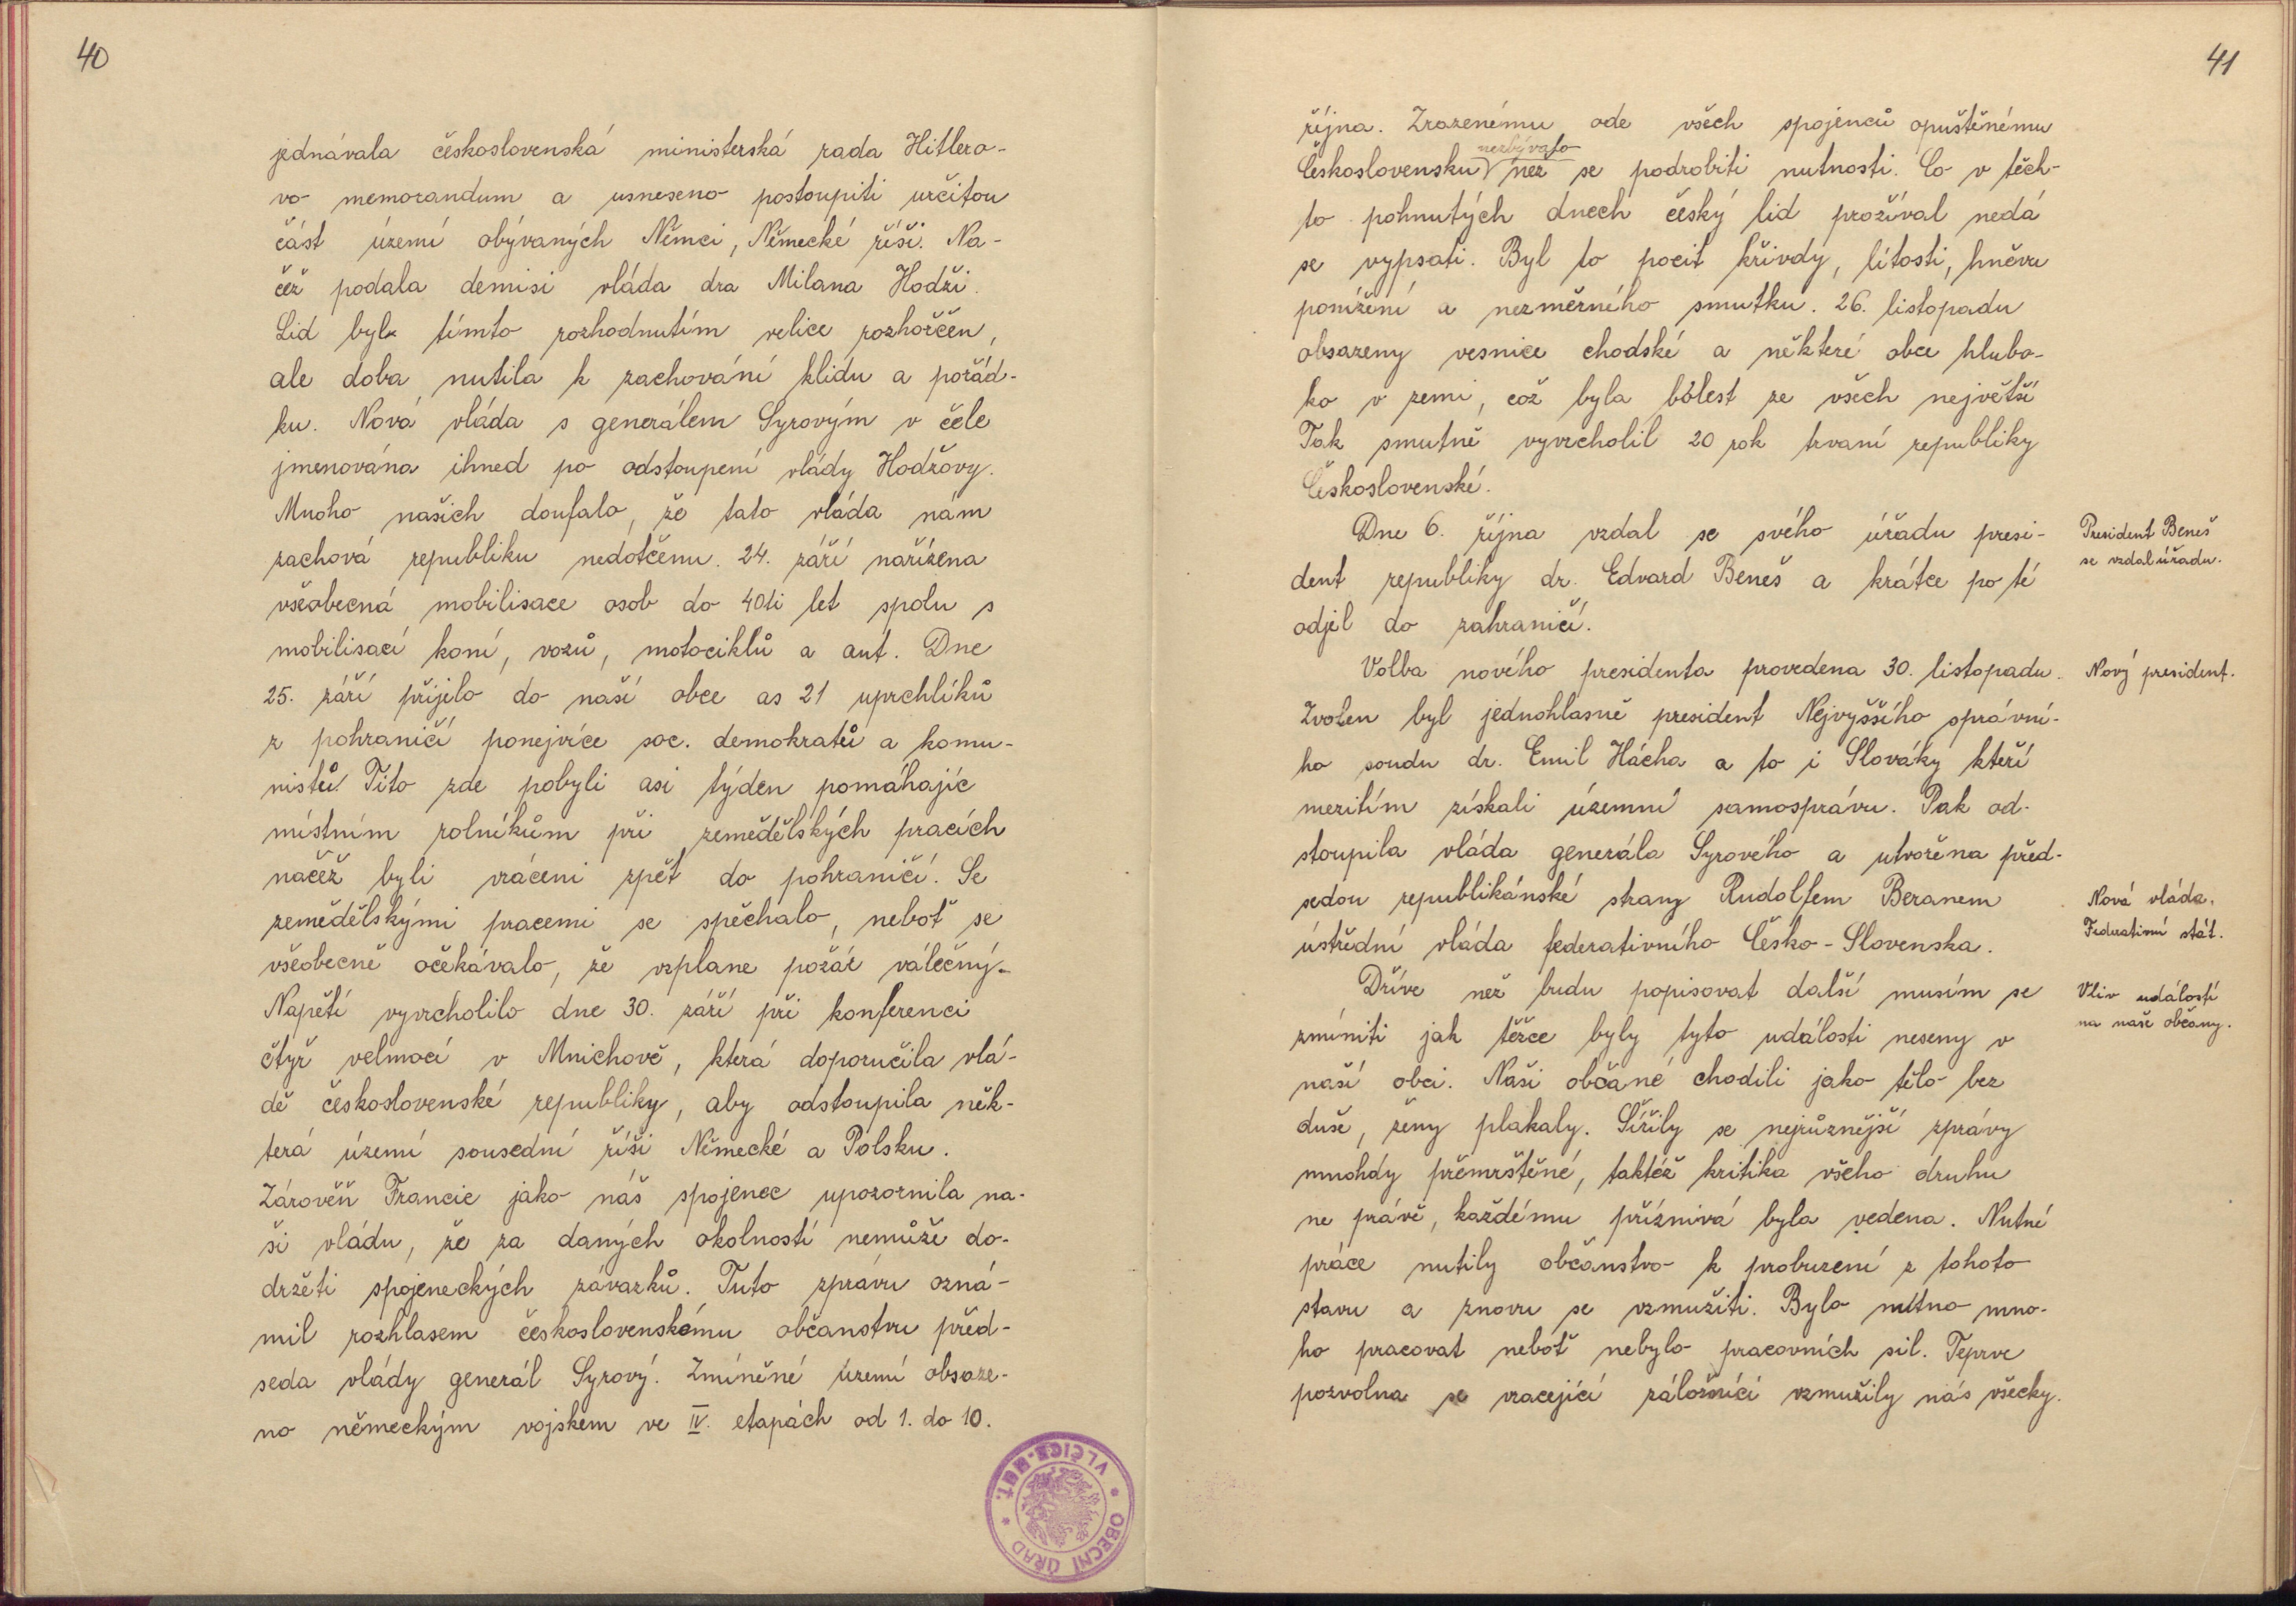 40
jednávala československá ministerská rada Hitlero-
vo memorandum a usneseno postoupiti určitou
část území obývaných Němci, Německé říši. Na-
čež podala demisi vláda dra Milana Hodži.
Lid byl tímto rozhodnutím velice rozhořčen,
ale doba nutila k zachování klidu a pořád-
ku. Nová vláda s generálem Syrovým v čele
jmenována ihned po odstoupení vlády Hodžovy.
Mnoho našich doufalo, že tato vláda nám
zachová republiku nedotčenu. 24. září nařízena
všeobecná mobilisace osob do 40ti let spolu s
mobilisací koní, vozů, motociklů a aut. Dne
25. září přijelo do naší obce as 21 uprchlíků
z pohraničí ponejvíce soc. demokratů a komu-
nistů. Tito zde pobyli asi týden pomáhajíc
místním rolníkům při zemědělských pracích
načež byli vráceni zpět do pohraničí. Se
zemědělskými pracemi se spěchalo, neboť se
všeobecně očekávalo, že vzplane požár válečný.
Napětí vyvrcholilo dne 30. září při konferenci
čtyř velmocí v Mnichově, která doporučila vlá-
dě československé republiky, aby odstoupila něk-
terá území sousední říši Německé a Polsku.
Zárověň Francie jako náš spojenec upozornila na-
ši vládu, že za daných okolností nemůže do-
držeti spojeneckých závazků. Tuto zprávu ozná-
mil rozhlasem československému občanstvu před-
seda vlády generál Syrový. Zmíněné území obsaze-
no německým vojskem ve IV. etapách od 1. do 10.
OBECNÍ ÚŘAD
VLČICE
41
října. Zrazenému ode všech spojenců opuštěnému
nezbývalo
Československu než se podrobiti nutnosti. Co v těch-
to pohnutých dnech český lid prožíval nedá
se vypsati. Byl to pocit křivdy, lítosti, hněvu
ponížení a nezměrného smutku. 26. listopadu
obsazeny vesnice chodské a některé obce hlubo-
ko v zemi, což byla bolest ze všech největší
Tak smutně vyvrcholil 20 rok trvaní republiky
Československé.
Dne 6. října vzdal se svého úřadu presi-
President Beneš
dent republiky dr. Edvard Beneš a krátce po té
se vzdal úřadu.
odjel do zahraničí.
Volba nového presidenta provedena 30. listopadu.
Nový president.
Zvolen byl jednohlasně president Nejvyššího správní-
ho soudu dr. Emil Hácha a to i Slováky kteří
mezitím získali územní samosprávu. Pak od-
stoupila vláda generála Syrového a utvořena před-
sedou republikánské strany Rudolfem Beranem
Nová vláda.
ústřední vláda federativního Česko-Slovenska.
Federativní stát.
Dříve než budu popisovat další musím se
Vliv událostí
zmíniti jak těžce byly tyto události neseny v
na naše občany.
naší obci. Naši občané chodili jako tělo bez
duše, ženy plakaly. Šířily se nejrůznější zprávy
mnohdy přemrštěné, taktéž kritika všeho druhu
ne právě, každému příznivá byla vedena. Nutné
práce nutily občanstvo k probuzení z tohoto
stavu a znovu se vzmužiti. Bylo nutno mno-
ho pracovat neboť nebylo pracovních sil. Teprve
pozvolna se vracející záložníci vzmužily nás všecky.